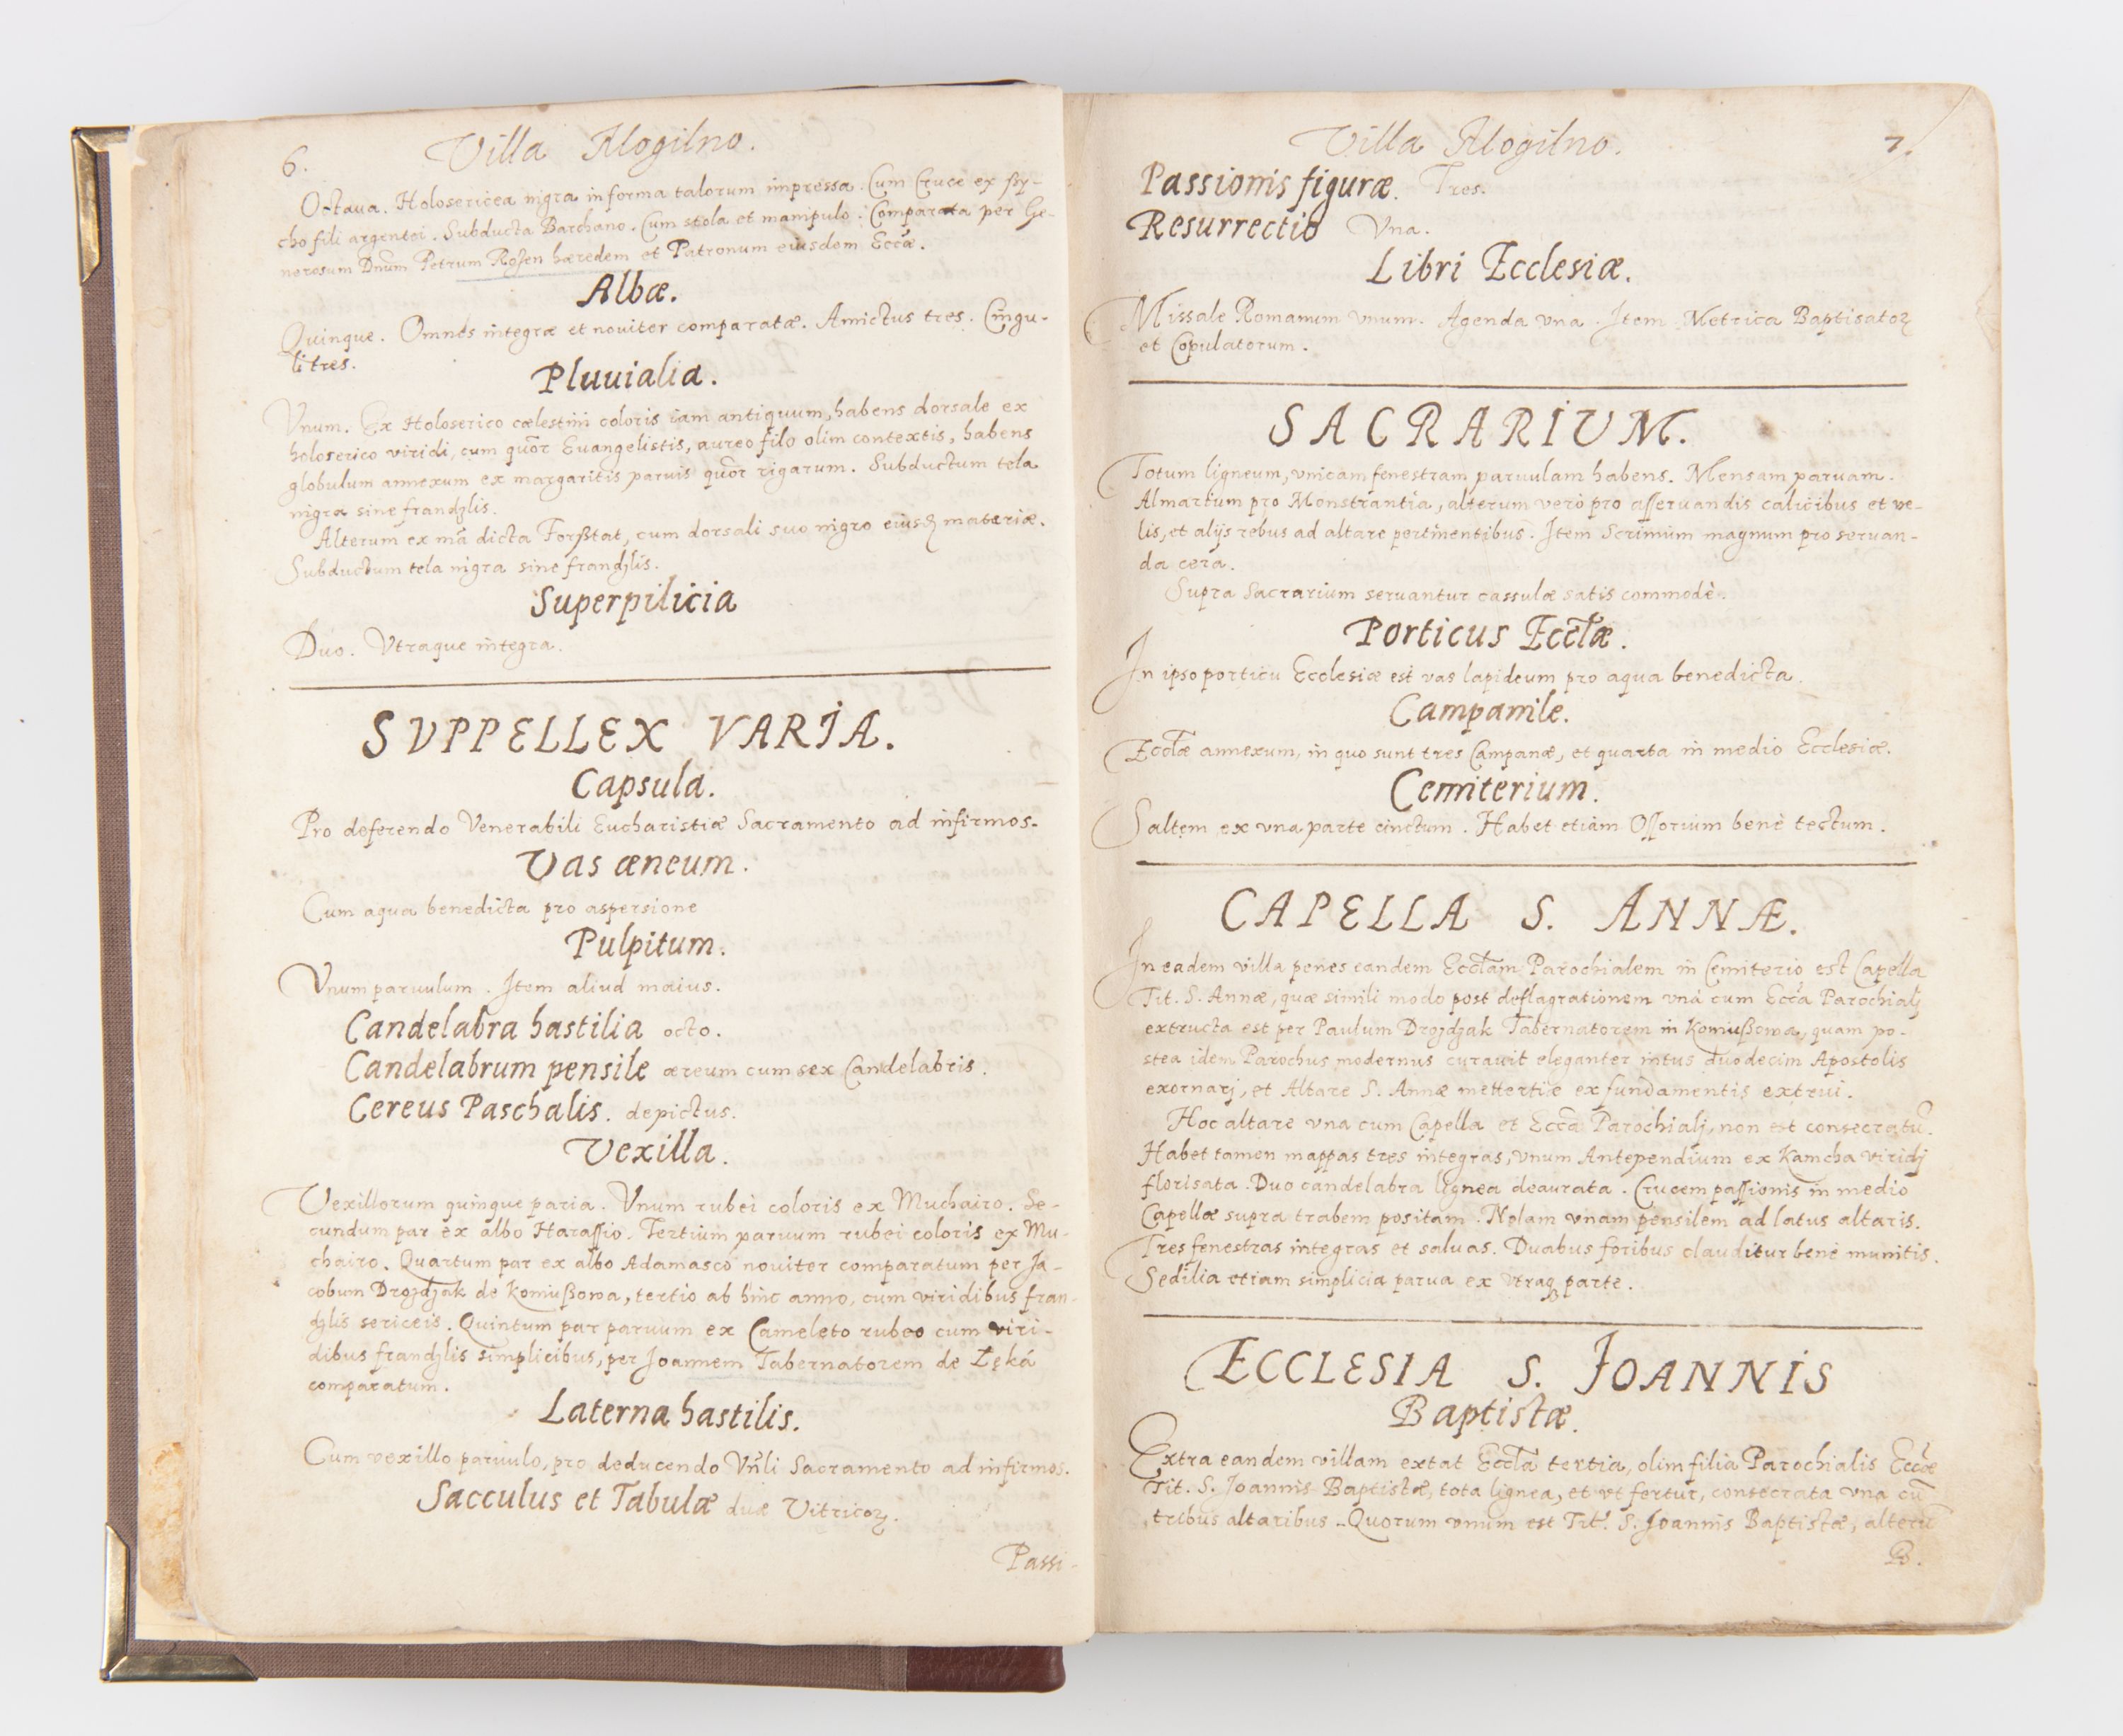 6. Villa Mogilno.
Octaua. Holosericea nigra in forma talorum impressa. Cum Cruce ex sy-
cho fili argentei. Subducta Barchano. Cum stola et manipulo. Comparata per Ge-
nerosum Dnum Petrum Rosen hæredem et Patronum eiusdem Eccæ.
Albæ.
Quinque. Omnes integræ et nouiter comparatæ. Amictus tres. Cingu-
li tres.
Pluuialia.
Vnum. Ex Holoserico cælestini coloris iam antiquum, habens dorsale ex
holoserico viridi, cum quor Euangelistis, aureo filo olim contextis, habens
globulum annexum ex margaritis paruis quor rigarum. Subductum tela
nigra sine frandzlis.
Alterum ex mā dicta Forßtat, cum dorsali suo nigro eiusꝗ materiæ.
Subductum tela nigra sine frandzlis.
Superpilicia
Duo. Vtraque integra.
SVPPELLEX VARIA.
Capsula.
Pro deferendo Venerabili Eucharistiæ Sacramento ad infirmos.
Vas æneum.
Cum aqua benedicta pro aspersione
Pulpitum.
Vnum paruulum. Item aliud maius.
Candelabra hastilia octo.
Candelabrum pensile æreum cum sex Candelabris.
Cereus Paschalis. depictus.
Vexilla.
Vexillorum quinque paria. Vnum rubei coloris ex Muchairo. Se-
cundum par ex albo Harassio. Tertium paruum rubei coloris ex Mu-
chairo. Quartum par ex albo Adamasco nouiter comparatum per Ja-
cobum Drozdzak de Koniußowa, tertio ab hinc anno, cum viridibus fran-
dzlis sericeis. Quintum par paruum ex Cameleto rubeo cum viri-
dibus frandzlis simplicibus, per Joannem Tabernatorem de Łęká
comparatum.
Laterna hastilis.
Cum vexillo paruulo, pro deducendo Vnli Sacramento ad infirmos.
Sacculus et Tabulæ duæ Vitricoꝝ.
Passi-
Villa Mogilno. 7.
Passionis figuræ. Tres.
Resurrectio Vna.
Libri Ecclesiæ.
Missale Romanum vnum. Agenda vna. Item Metrica Baptisatoꝝ
et Copulatorum.
SACRARIUM.
Totum ligneum, vnicam fenestram paruulam habens. Mensam paruam.
Almarium pro Monstrantia, alterum verò pro asseruandis calicibus et ve-
lis, et alijs rebus ad altare pertinentibus. Item Scrinium magnum pro seruan-
da cera.
Supra Sacrarium seruantur cassulæ satis commodè.
Porticus Ecclæ.
In ipso porticu Ecclesiæ est vas lapideum pro aqua benedicta.
Campanile.
Ecclæ annexum, in quo sunt tres Campanæ, et quarta in medio Ecclesiæ.
Cemiterium.
Saltem ex vna parte cinctum. Habet etiam Ossorium benè tectum.
CAPELLA S. ANNÆ.
In eadem villa penes eandem Ecclam Parochialem in Cemiterio est Capella
Tit. S. Annæ, quæ simili modo post deflagrationem vnà cum Ecca Parochiali
extructa est per Paulum Drozdzak Tabernatorem in Koniußowa, quam po-
stea idem Parochus modernus curauit eleganter intus duodecim Apostolis
exornarj, et Altare S. Annæ mettertiæ ex fundamentis extrui.
Hoc altare vna cum Capella et Ecca Parochialj, non est consecratū.
Habet tamen mappas tres integras, vnum Antependium ex Kamcha viridj
florisata. Duo candelabra lignea deaurata. Crucem passionis in medio
Capellæ supra trabem positam. Nolam vnam pensilem ad latus altaris.
Tres fenestras integras et saluas. Duabus foribus clauditur benè munitis.
Sedilia etiam simplicia parua ex vtraqꝫ parte.
ECCLESIA S. JOANNIS
Baptistæ.
Extra eandem villam extat Eccla tertia, olim filia Parochialis Eccæ
Tit. S. Joannis Baptistæ, tota lignea, et vt fertur, consecrata vna cū
tribus altaribus. Quorum vnum est Tit. S. Joannis Baptistæ, alterū
B.